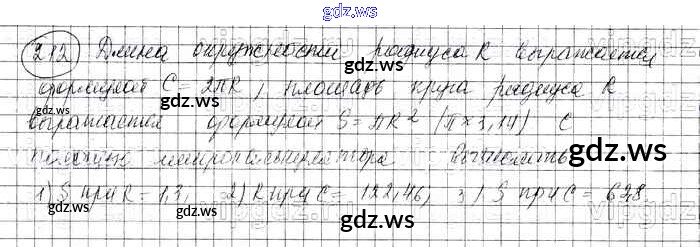 gdz.ws
212 Длина окружности радиуса R выражается
формулой C = 2πR, площадь круга радиуса R
выражается формулой S = πR² (π ≈ 3,14) С
помощью микрокалькулятора вычислить
1) S при R = 1,3, 2) R при C = 122,46, 3) S при C = 628
gdz.ws
gdz.ws
gdz.ws
gdz.ws
gdz.ws
gdz.ws